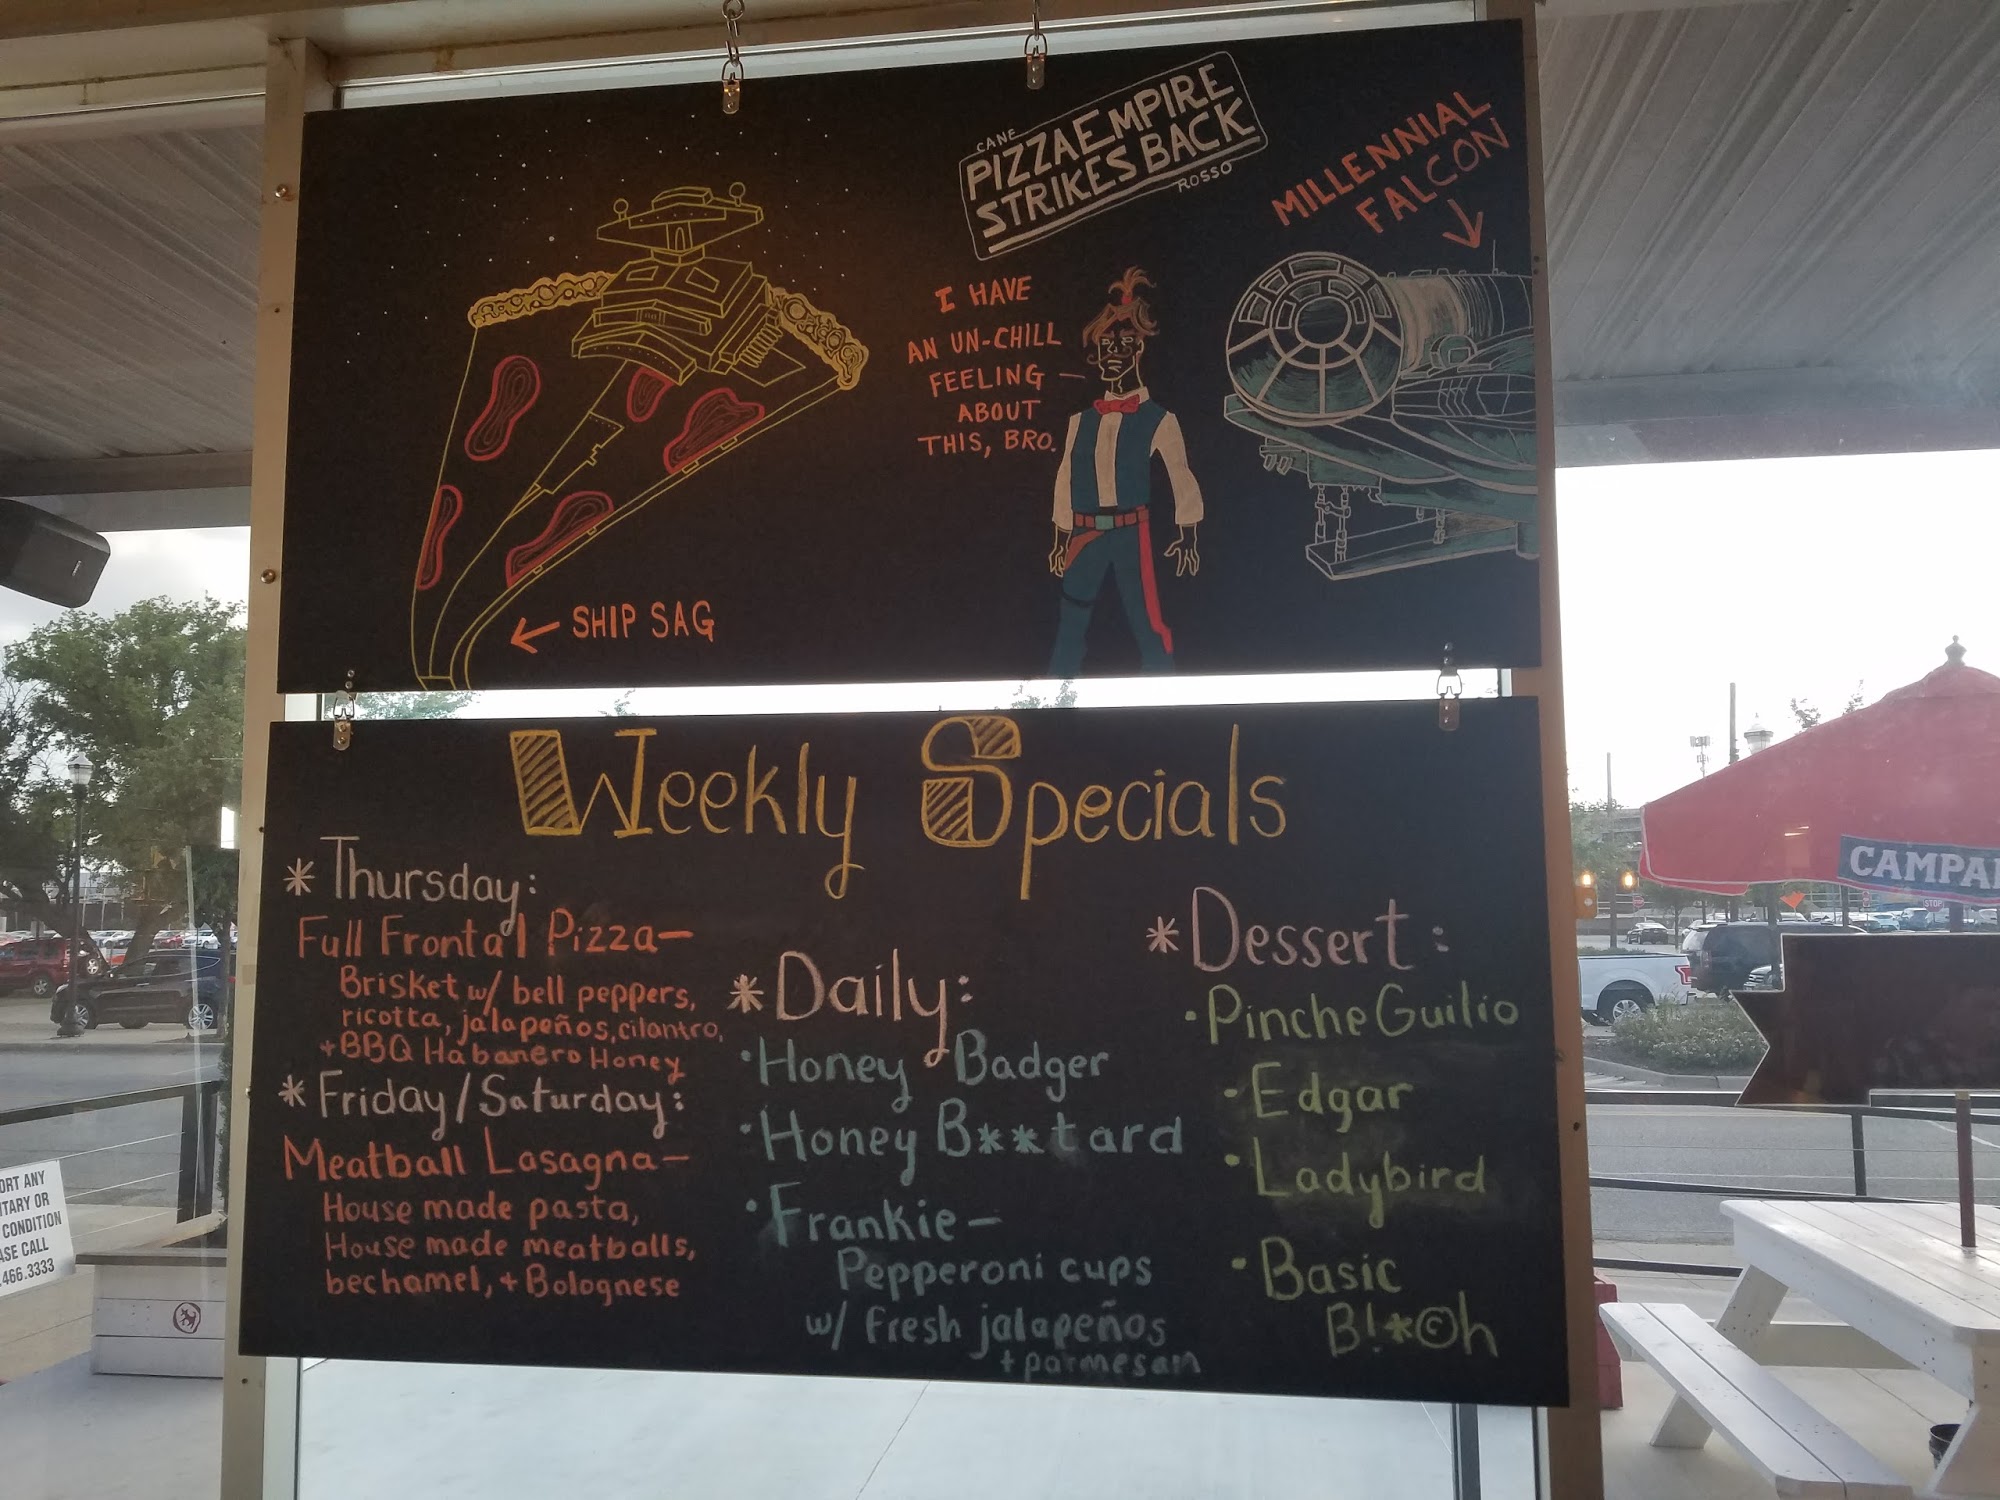 CANE
PIZZA EMPIRE
STRIKES BACK
ROSSO
MILLENNIAL
FALCON
I HAVE
AN UN-CHILL
FEELING
ABOUT
THIS, BRO.
SHIP SAG
Weekly Specials
* Thursday:
Full Frontal Pizza—
Brisket w/ bell peppers,
ricotta, jalapeños, cilantro,
+ BBQ Habanero Honey
* Friday/Saturday:
Meatball Lasagna—
House made pasta,
House made meatballs,
bechamel, + Bolognese
* Daily:
• Honey Badger
• Honey B**tard
• Frankie—
Pepperoni cups
w/ fresh jalapeños
+ parmesan
* Dessert:
• Pinche Guilio
• Edgar
• Ladybird
• Basic
B!*©h
CAMPA
STOP
ORT ANY
ITARY OR
CONDITION
ASE CALL
.466.3333